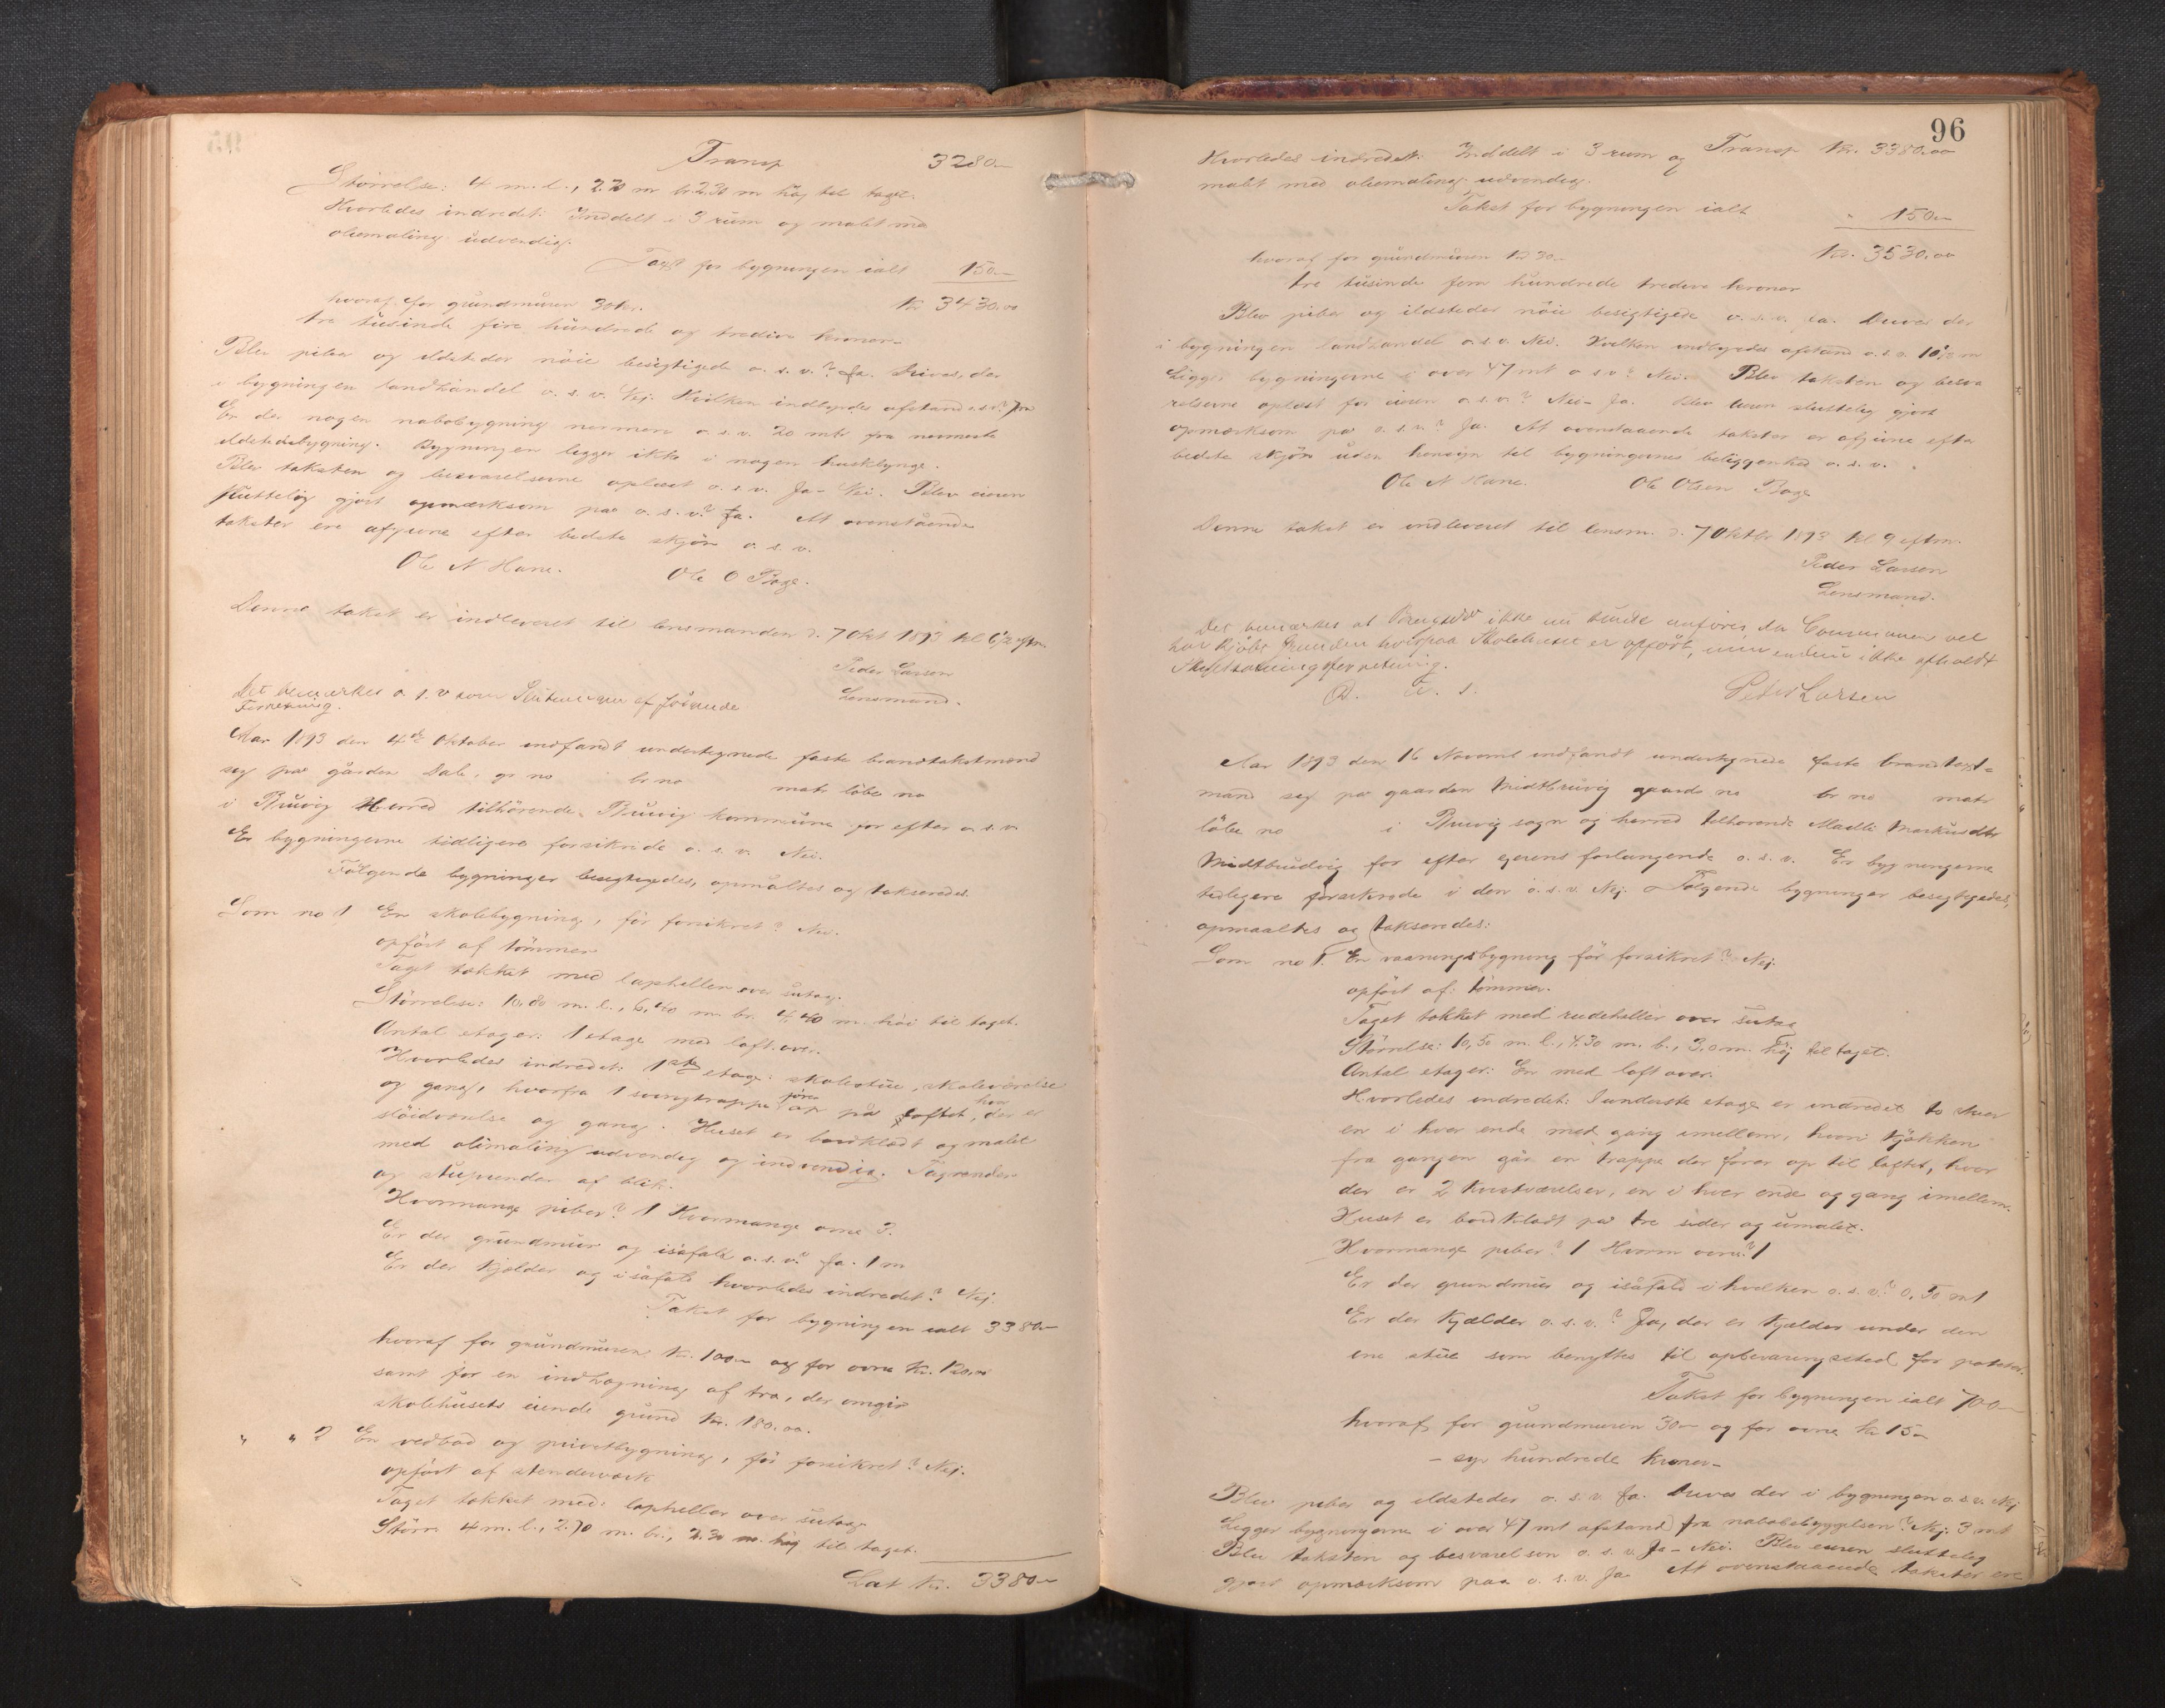 Transp 3280.-
Størrelse: 4 m. l., 2.70 m br. 2.30 m høj til taget.
Hvorledes indredet: Inddelt i 3 rum og malt med
oliemaling udvendig.
Taxt for bygningen ialt 150.-
hvoraf for grundmuren 30 kr. Kr 3430.00
tre tusinde fire hundrede og tredive kroner.-
Blev piber og ildsteder nöie besigtigede o. s. v.? Ja. Drives der
i bygningen landhandel o. s. v. Nej. Hvilken indbyrdes afstand o.s.v.? 7 m
Er der nogen nabobygning nærmere o. s. v. 20 mtr fra nærmeste
ildstedsbygning. Bygningen legger ikke i nogen husklynge.
Blev taksten og besvarelserne oplæst o. s. v. Ja - Nei. Blev eieren
slutteligt gjort opmærksom paa o. s. v.? Ja. At ovenstående
takster ere afgivne efter bedste skjön o. s. v.
Ole N Hane. Ole O Boge.
Denne takst er indleveret til lensmanden d. 7 Okt 1893 kl 6 1/2 eftm.
Peder Larsen
Lensmand.
Det bemærkes o. s. v som
Forretning.
Aar 1893 den 4de Oktober indfandt undertegnede faste brandtakstmænd
sig paa gården Dale, gr no br no matr löbe no
i Bruvig Herred tilhörende Bruvig kommune for efter o. s. v
Er bygningerne tidligere forsikrede o. s. v. Nei.
Fölgende bygninger besigtigedes, opmåltes og takseredes.
Som no 1 En skolebygning, för forsikret? Nei.
opfört af tömmer
Taget tækket med lapheller over sutag.
Størrelse: 10.80 m. l., 6,40 m. br. 4,40 m. höi til taget.
Antal etager: 1 etage med loft over.
Hvorledes indredet: 1ste etage: skolestue, skoleværelse
og gang, hvorfra 1 svingtrappe förer op på loftet, hvor der er
slöidværelse og gang. Huset er bordklædt og malet
med oliemaling udvendig og indvendig. Tagrender
og stuprender af blik.
Hvormange piber? 1 Hvormange ovne 3.
Er der grundmur og isåfald o. s. v? Ja. 1 m
Er der kjelder og isåfald hvorledes indredet? Nej.
Takst for bygningen ialt 3380.-
hvoraf for grundmuren Kr. 100.- og for ovne Kr. 120,00
samt for en indhægning af træ, der omgir
skolehusets eiende grund Kr. 180.00.
" " 2 En vedbod og privetbygning, för forsikret? Nej.
opfört af stenderværk
Taget tækket med: lapheller over sutag.
Större 4 m. l., 2.70 m. br., 2.30 m. høj til taget.
Lat Kr. 3380.-
96
Hvorledes indredet: Inddelt i 3 rum og Transp Kr. 3380.00
malt med oliemaling udvendig.
Takst for bygningen ialt " 150.-
hvoraf for grundmuren Kr 30.- Kr. 3530.00
tre tusinde fem hundrede tredive kroner
Blev piber og ildsteder nöie besigtigede o. s. v. Ja. Drives der
i bygningen landhandel o. s. v. Nei. Hvilken indbyrdes afstand o. s. v. 10 1/2 m
Ligger bygningerne i over 47 mt o s v? Nei. Blev taksten og besva
relserne oplæst for eieren o. s. v.? Nei - Ja. Blev eieren sluttelig gjort
opmærksom paa o. s. v.? Ja. At ovenstaaende takster er afgivne efter
bedste skjön uden hensyn til bygningernes beliggenhed o. s. v.
Ole N Hane. Ole Olsen Boge
Denne takst er indleveret til lensm. d. 7 Oktbr 1893 kl 9 eftm.
Peder Larsen
Lensmand.
Det bemærkes at Brugsno ikke nu kunde anföres, da Communen vel
har kjöbt Grunden hvorpaa Skolehuset er opfört, men endnu ikke afholdt
Skyldsætningsforretning.
D. U. S. Peder Larsen
Aar 1893 den 16 Novembr indfandt undertegnede faste brandtaxt-
mænd sig paa gaarden Midtbruvig gaards no br no matr
löbe no i Bruvig sogn og herred tilhörende Madli Markusdtr
Midtbrudvig for efter ejerens forlangende o. s. v. Er bygningerne
tidligere forsikrede i den o. s. v. Nej. Fölgende bygninger besigtigedes,
opmaaltes og takseredes:
Som no 1. En vaaningsbygning för forsikret? Nej.
opfört af: tömmer.
Taget tækket med rudeheller over sutag
Størrelse: 10,50 m. l., 4.30 m. b., 3.0 m. høj til taget.
Antal etager: En med loft over.
Hvorledes indredet: I underste etage er indredet to stuer
en i hver ende med gang imellem, hvori kjökken
fra gangen går en trappe der förer op til loftet, hvor
der er 2 kvistværelser, en i hver ende og gang imellem.
Huset er bordklædt på tre sider og umalet.
Hvormange piber? 1 Hvorm ovne? 1
Er der grundmur og isåfald i hvilken o. s. v.? 0.50 mt
Er der Kjælder o. s. v.? Ja, der er kjælder under den
ene stue som benyttes til opbevaringssted for poteter.
Takst for bygningen ialt 700.-
hvoraf for grundmuren 30.- og for ovne Kr 15.-
- syv hundrede kroner -
Blev piber og ildsteder o. s. v. Ja. Drives der i bygningen o. s. v. Nej
Ligger bygningerne i over 47 mt afstand fra nabobebyggelsen? Nej. 3 mt
Blev taksten og besvarelsen o. s. v. Ja - Nei. Blev eieren sluttelig
gjort opmærksom paa o. s. v. Ja At ovenstaaende takster ere